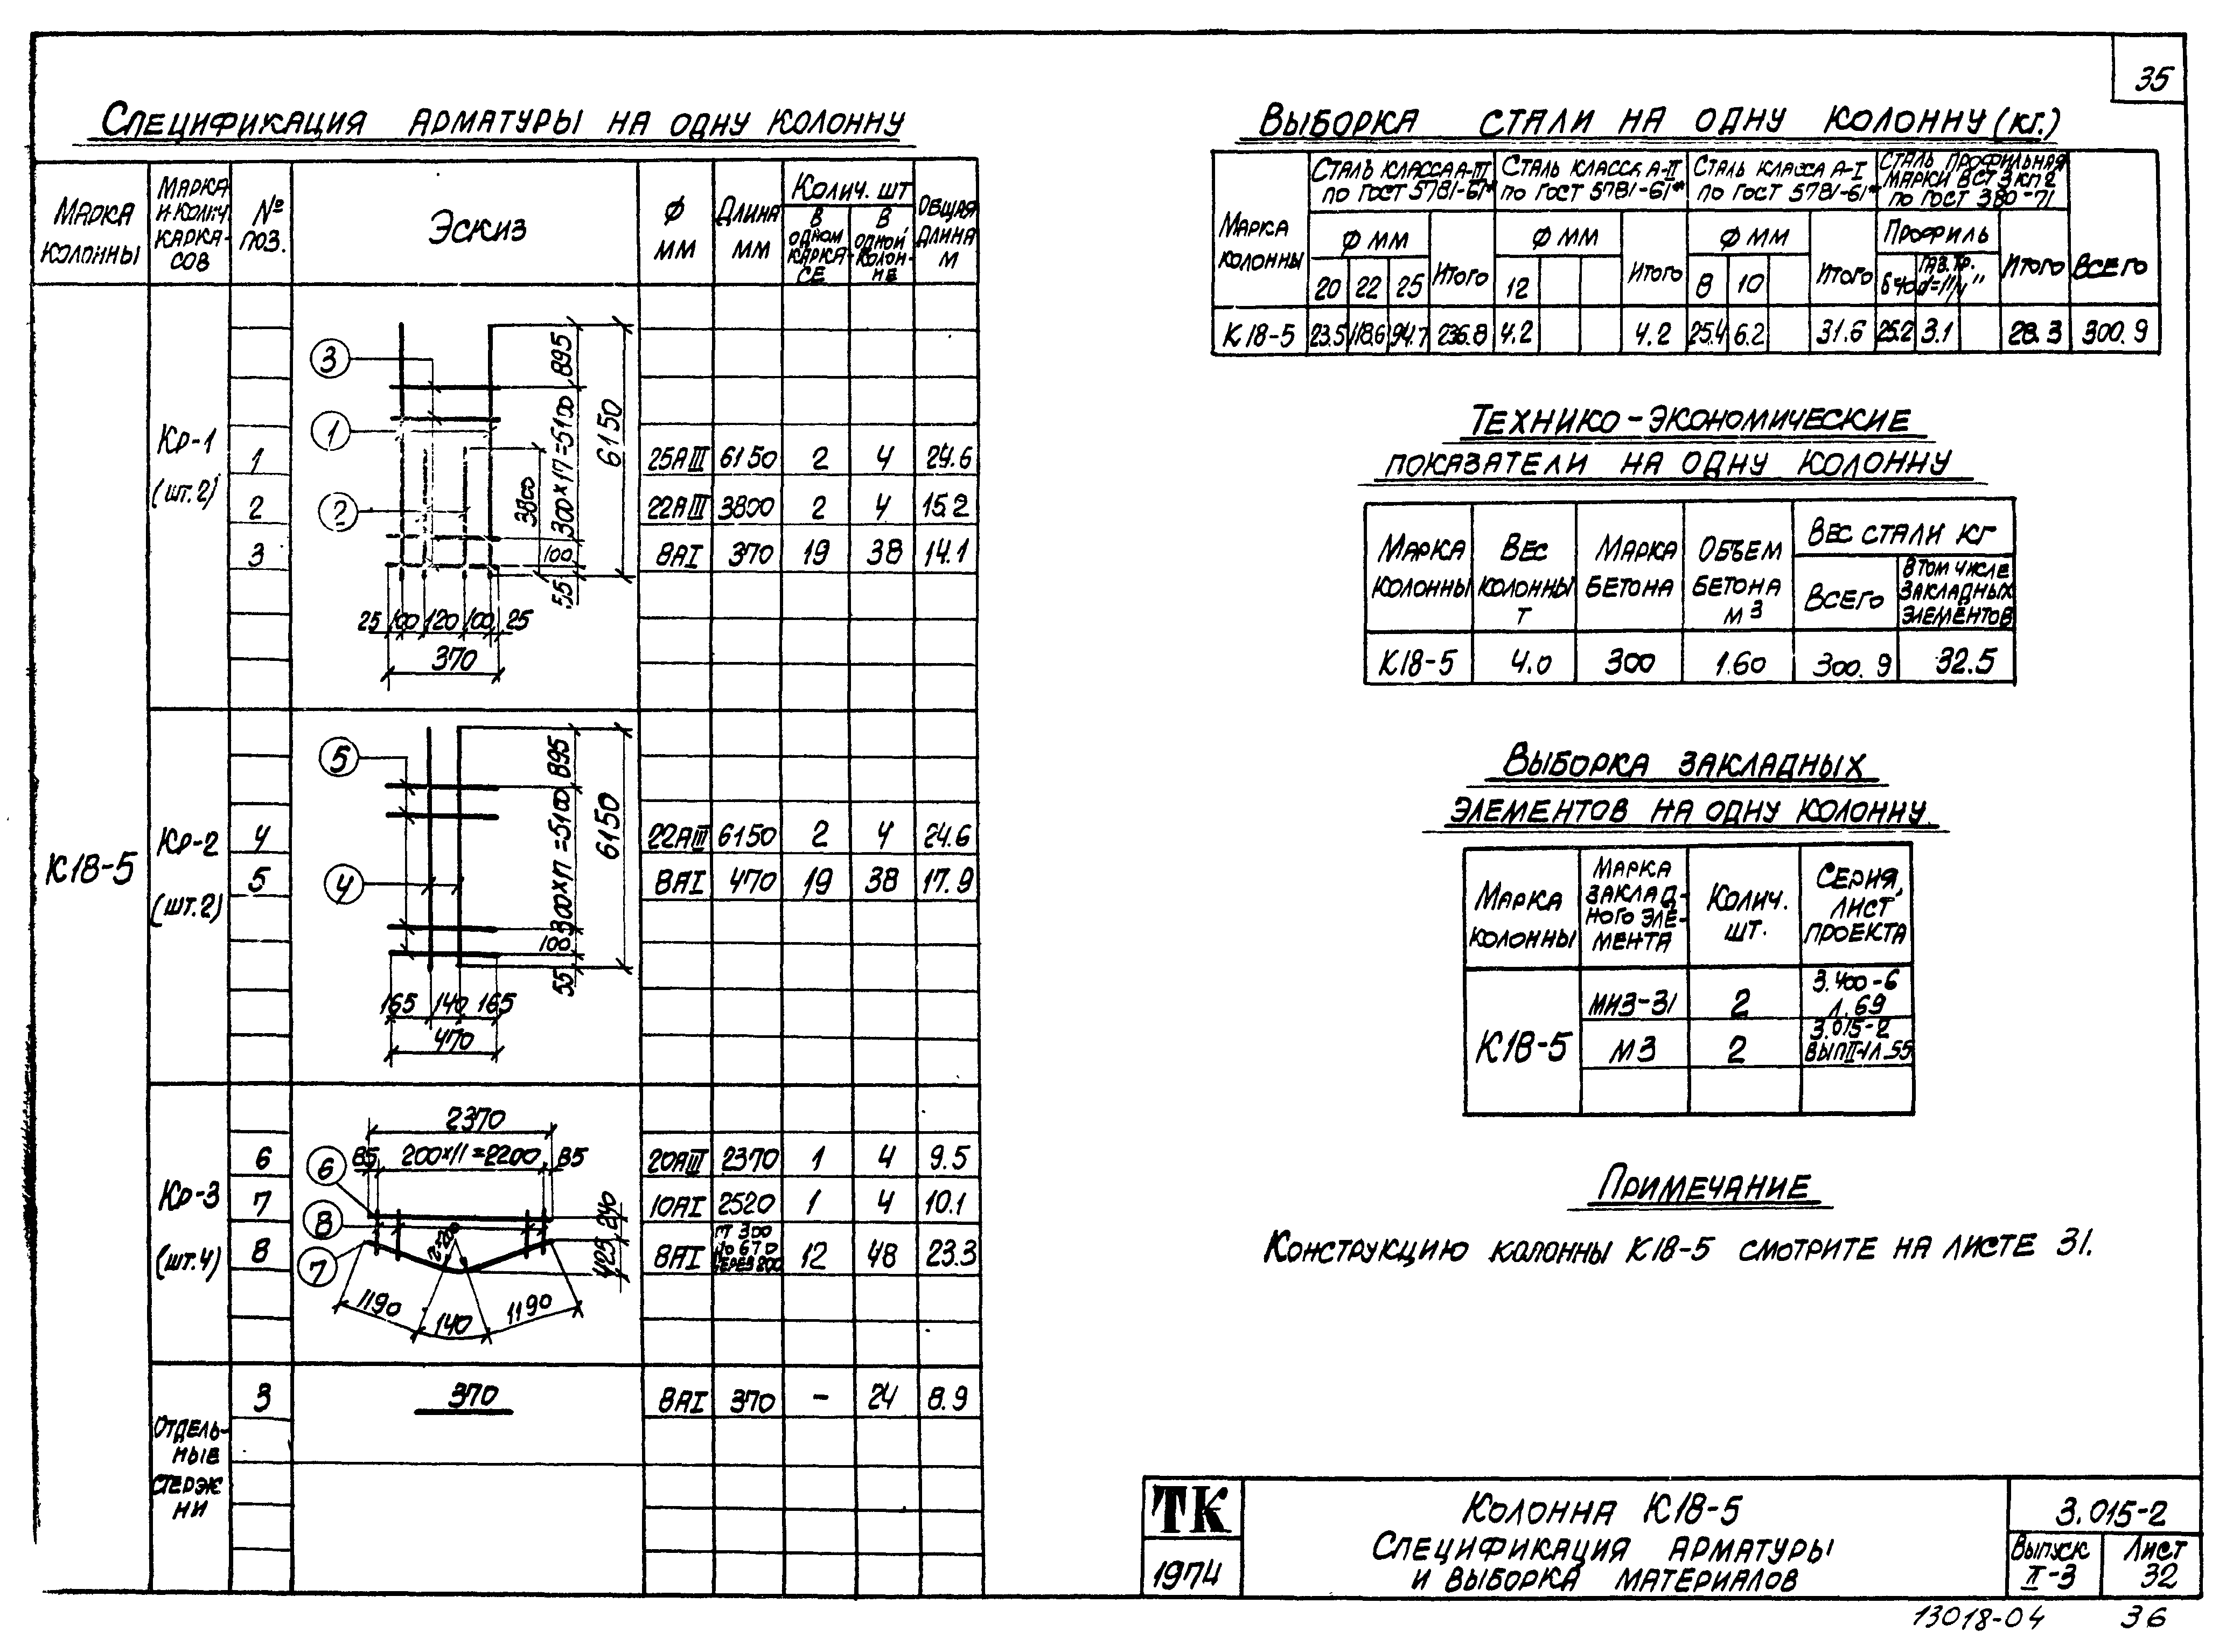 35
Спецификация арматуры на одну колонну
Марка колонны
Марка и колич. каркасов
№ поз.
Эскиз
Ø мм
Длина мм
Колич. шт
в одном каркасе
в одной колонне
Общая длина м
К18-5
Кр-1
(шт.2)
1 25АIII 6150 2 4 24.6
2 22АIII 3800 2 4 15.2
3 8АI 370 19 38 14.1
3
1
2
895
300×17=5100
6150
3800
100
55
25 100 120 100 25
370
Кр-2
(шт.2)
4 22АIII 6150 2 4 24.6
5 8АI 470 19 38 17.9
5
4
895
300×17=5100
6150
100
55
165 140 165
470
Кр-3
(шт.4)
6 20АIII 2370 1 4 9.5
7 10АI 2520 1 4 10.1
8 8АI от 300 до 670 12 48 23.3
2370
85 200×11=2200 85
6
8
7
240
425
1190 140 1190
Отдельные стержни
3 370 8АI 370 – 24 8.9
Выборка стали на одну колонну (кг.)
Марка колонны
Сталь класса А-III по ГОСТ 5781-61*
Сталь класса А-II по ГОСТ 5781-61*
Сталь класса А-I по ГОСТ 5781-61*
Сталь профильная марки ВСт3кп2 по ГОСТ 380-71
Всего
Ø мм Итого Ø мм Итого Ø мм Итого Профиль Итого
20 22 25 12 8 10 газ. тр. d=1¼"
К18-5 23.5 118.6 94.7 236.8 4.2 4.2 25.4 6.2 31.6 25.2 3.1 28.3 300.9
Технико-экономические
показатели на одну колонну
Марка колонны
Вес колонны т
Марка бетона
Объем бетона м3
Вес стали кг
Всего
В том числе закладных элементов
К18-5 4.0 300 1.60 300.9 32.5
Выборка закладных
элементов на одну колонну.
Марка колонны
Марка закладного элемента
Колич. шт.
Серия, лист проекта
К18-5
МИЗ-31 2 3.400-6 л.69
М3 2 3.015-2 вып II-1 л.55
Примечание
Конструкцию колонны К18-5 смотрите на листе 31.
ТК
1974
Колонна К18-5
Спецификация арматуры
и выборка материалов
3.015-2
Выпуск II-3
Лист 32
13018-04 36